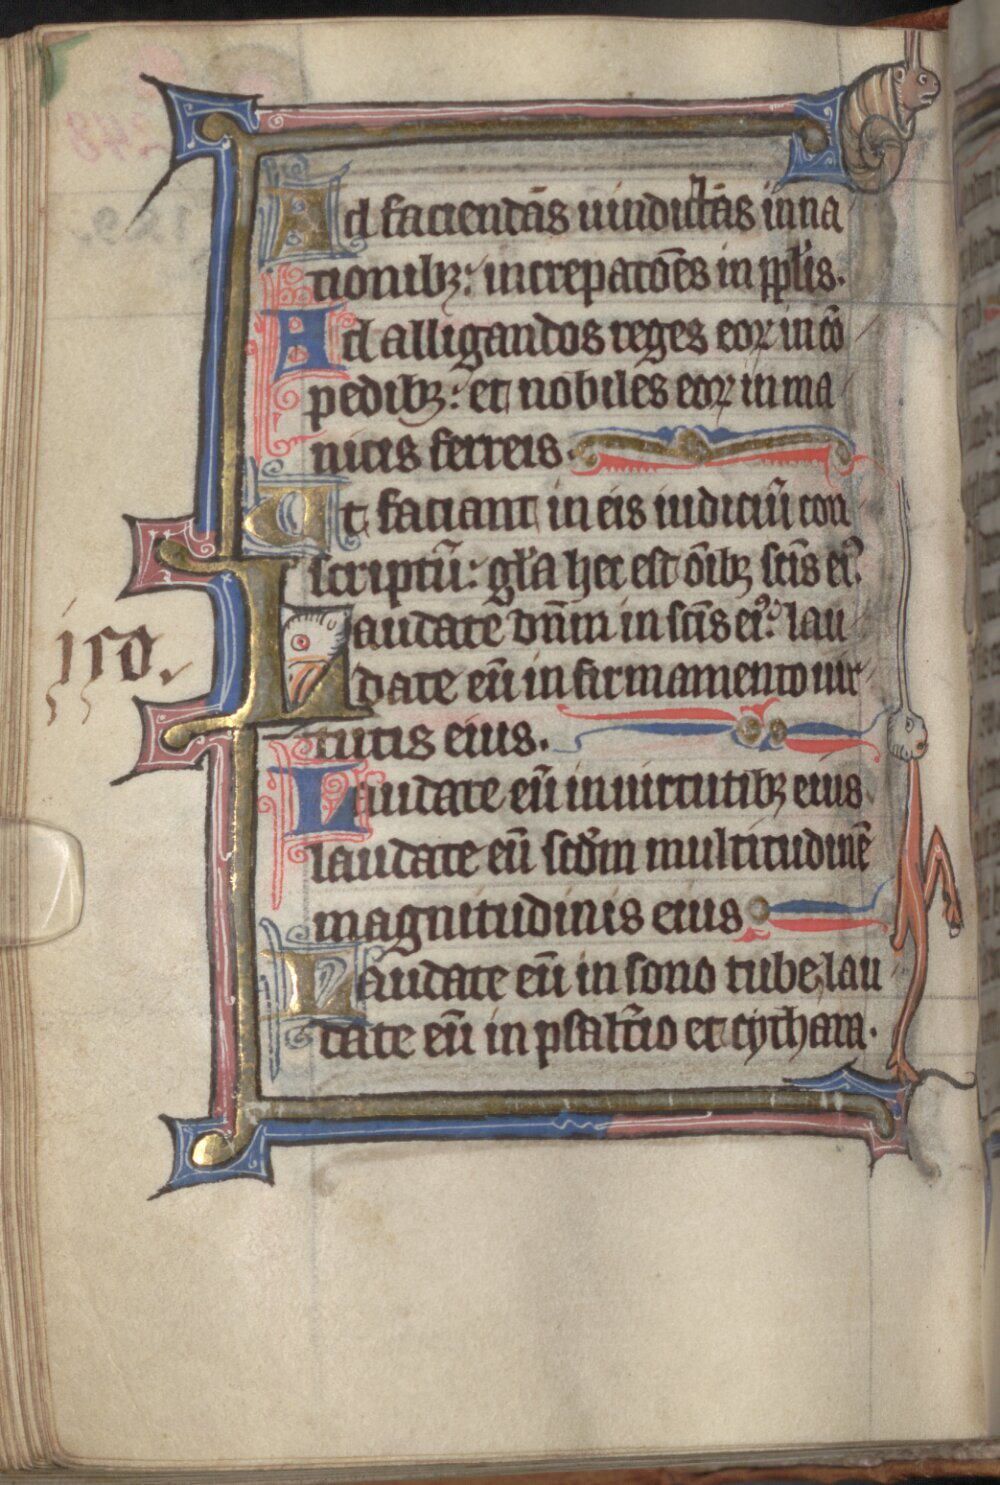 Ad faciendās uindictās in na
tionibꝫ: increpatōēs in pp̄lis.
Ad alligandos reges eoꝝ in cō
pedibꝫ: et nobiles eoꝝ in ma
nicis ferreis.
Ut faciant in eis iudiciū con
scriptū: gl̄a hec est ōibꝫ sc̄is eiꝰ.
150.
Laudate dn̄m in sc̄is eiꝰ: lau
date eū in firmamento uir
tutis eius.
Laudate eū in uirtutibꝫ eius
laudate eū scd̄m multitudinē
magnitudinis eius
Laudate eū in sono tube, lau
date eū in psalt̄io et cythara.